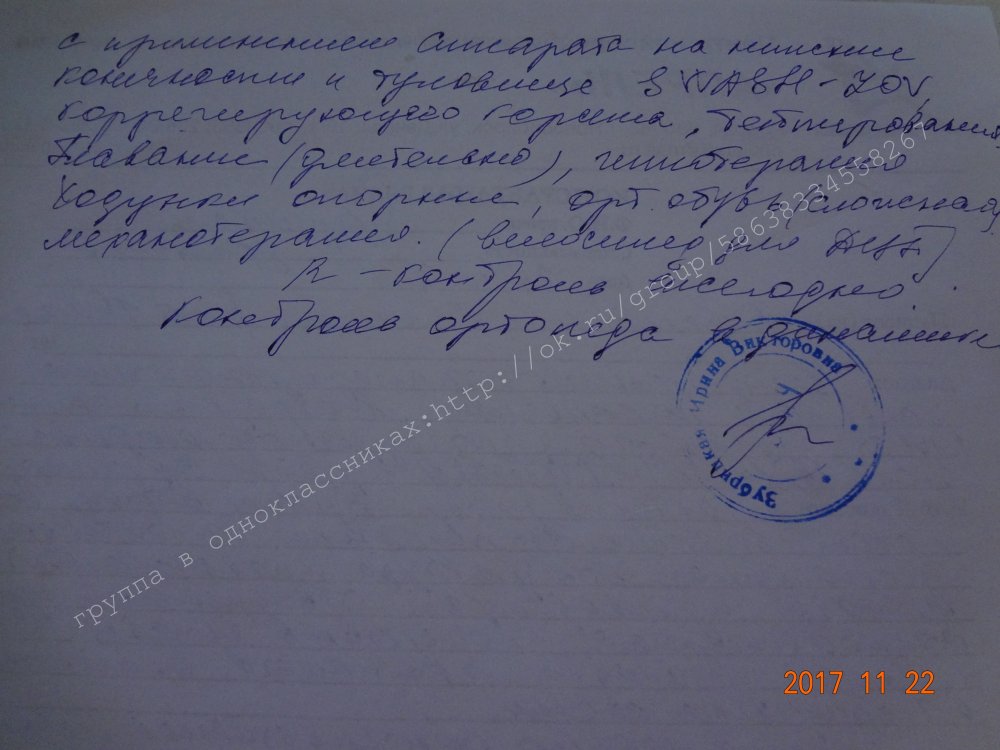 с применением аппарата на нижние
конечности и туловище SWASH-ZOV,
корригирующего корсета, тейпирование
Плавание (длительно), иппотерапия
ходунки опорные, орт. обувь сложная,
механотерапия. (велосипед для ДЦП)
R-контроль ежегодно.
Контроль ортопеда в динамике
Зубрицкая Ирина Викторовна
группа в одноклассниках:http://ok.ru/group/58638334558267
2017 11 22